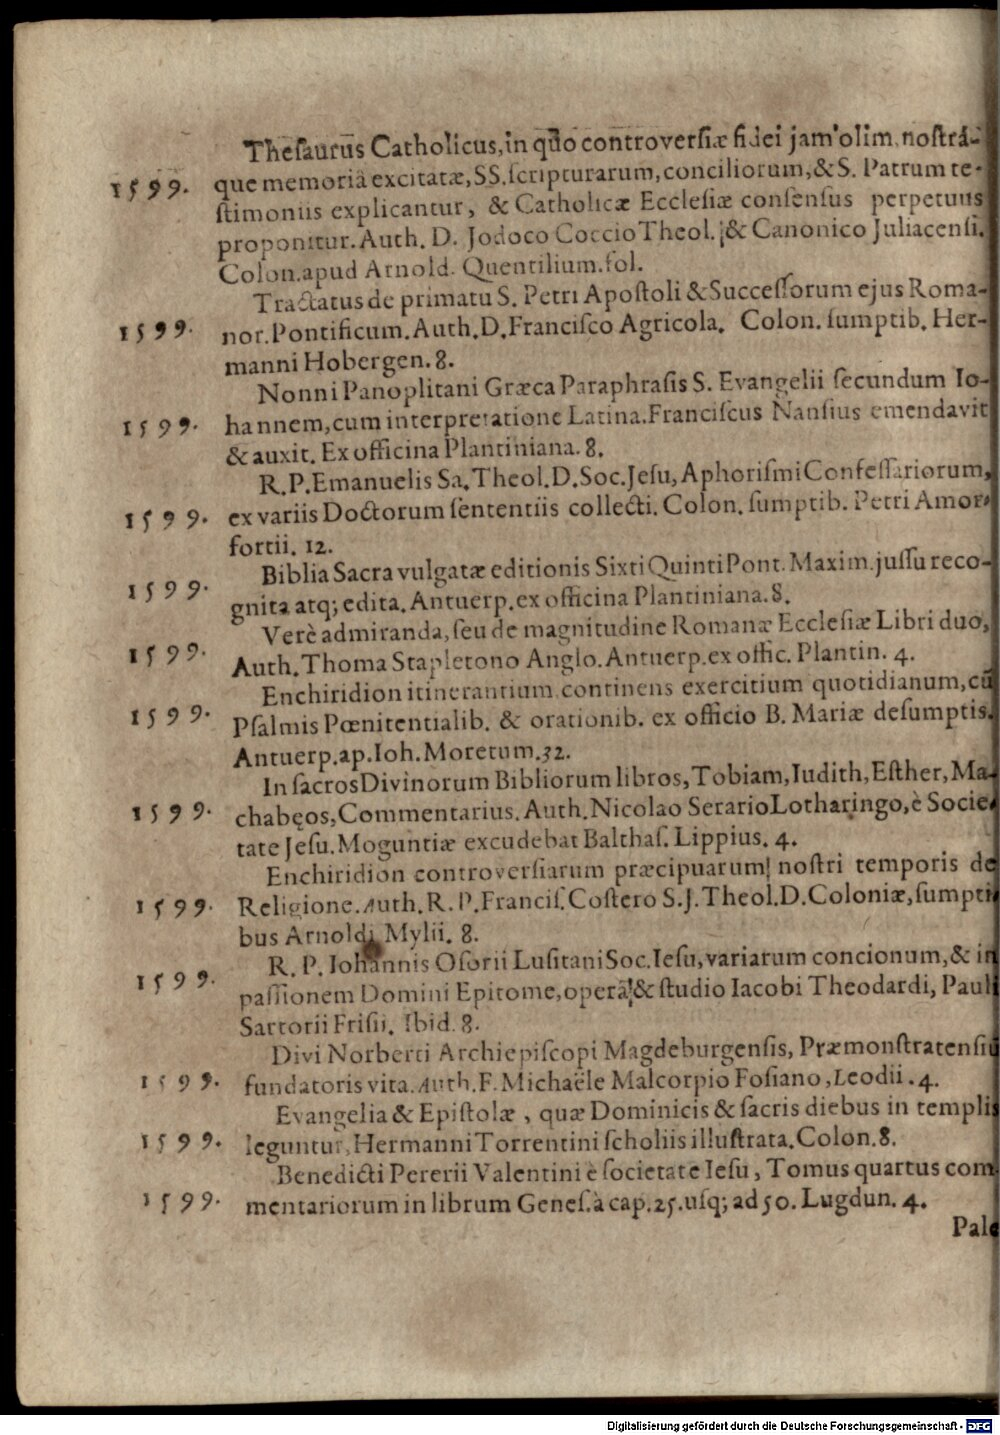 Theſaurus Catholicus, in quo controverſiæ fidei jam olim, noſtrâ-
1599. que memoriâ excitatæ, SS. ſcripturarum, conciliorum, & S. Patrum te-
ſtimoniis explicantur, & Catholicæ Eccleſiæ conſenſus perpetuus
proponitur. Auth. D. Jodoco Coccio Theol. & Canonico Juliacenſi.
Colon. apud Arnold. Quentilium. fol.
Tractatus de primatu S. Petri Apoſtoli & Succeſſorum ejus Roma-
1599. nor. Pontificum. Auth. D. Franciſco Agricola. Colon. ſumptib. Her-
manni Hobergen. 8.
Nonni Panoplitani Græca Paraphraſis S. Evangelii ſecundum Io-
1599. hannem, cum interpretatione Latina. Franciſcus Nanſius emendavit
& auxit. Ex officina Plantiniana. 8.
R. P. Emanuelis Sa. Theol. D. Soc. Jeſu, Aphoriſmi Confeſſariorum,
1599. ex variis Doctorum ſententiis collecti. Colon. ſumptib. Petri Amor-
fortii. 12.
Biblia Sacra vulgatæ editionis Sixti Quinti Pont. Maxim. juſſu reco-
1599. gnita atq; edita. Antuerp. ex officina Plantiniana. 8.
Verè admiranda, ſeu de magnitudine Romanæ Eccleſiæ Libri duo,
1599. Auth. Thoma Stapletono Anglo. Antuerp. ex offic. Plantin. 4.
Enchiridion itinerantium, continens exercitium quotidianum, cũ
1599. Pſalmis Pœnitentialib. & orationib. ex officio B. Mariæ deſumptis.
Antuerp. ap. Ioh. Moretum. 32.
In ſacros Divinorum Bibliorum libros, Tobiam, Iudith, Eſther, Ma-
1599. chabęos, Commentarius. Auth. Nicolao Serario Lotharingo, è Socie-
tate Jeſu. Moguntiæ excudebat Balthaſ. Lippius. 4.
Enchiridion controverſiarum præcipuarum noſtri temporis de
1599. Religione. Auth. R. P. Franciſ. Coſtero S. J. Theol. D. Coloniæ, ſumpti-
bus Arnoldi Mylii. 8.
R. P. Iohannis Oſorii Luſitani Soc. Ieſu, variarum concionum, & in
1599. paſſionem Domini Epitome, operâ & ſtudio Iacobi Theodardi, Pauli
Sartorii Friſii. Ibid. 8.
Divi Norberti Archiepiſcopi Magdeburgenſis, Præmonſtratenſiũ
1599. fundatoris vita. Auth. F. Michaële Malcorpio Foſiano, Leodii. 4.
Evangelia & Epiſtolæ, quæ Dominicis & ſacris diebus in templis
1599. leguntur, Hermanni Torrentini ſcholiis illuſtrata. Colon. 8.
Benedicti Pererii Valentini è ſocietate Ieſu, Tomus quartus com-
1599. mentariorum in librum Geneſ. à cap. 25. uſq; ad 50. Lugdun. 4.
Pale
Digitalisierung gefördert durch die Deutsche Forschungsgemeinschaft - DFG